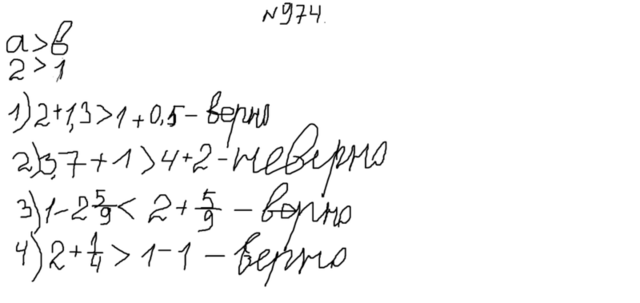 №974.
a>b
2>1
1) 2+1,3>1+0,5 - верно
2) 3,7+1>4+2 - неверно
3) 1-2 5/9 < 2+5/9 - верно
4) 2+1/4 > 1-1 - верно